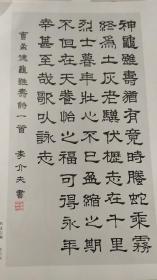 神龜雖壽猶有竟時騰蛇乘霧
終為土灰老驥伏櫪志在千里
烈士暮年壯心不已盈縮之期
不但在天養怡之福可得永年
幸甚至哉歌以詠志
曹孟德龜雖壽詩一首 李介夫書